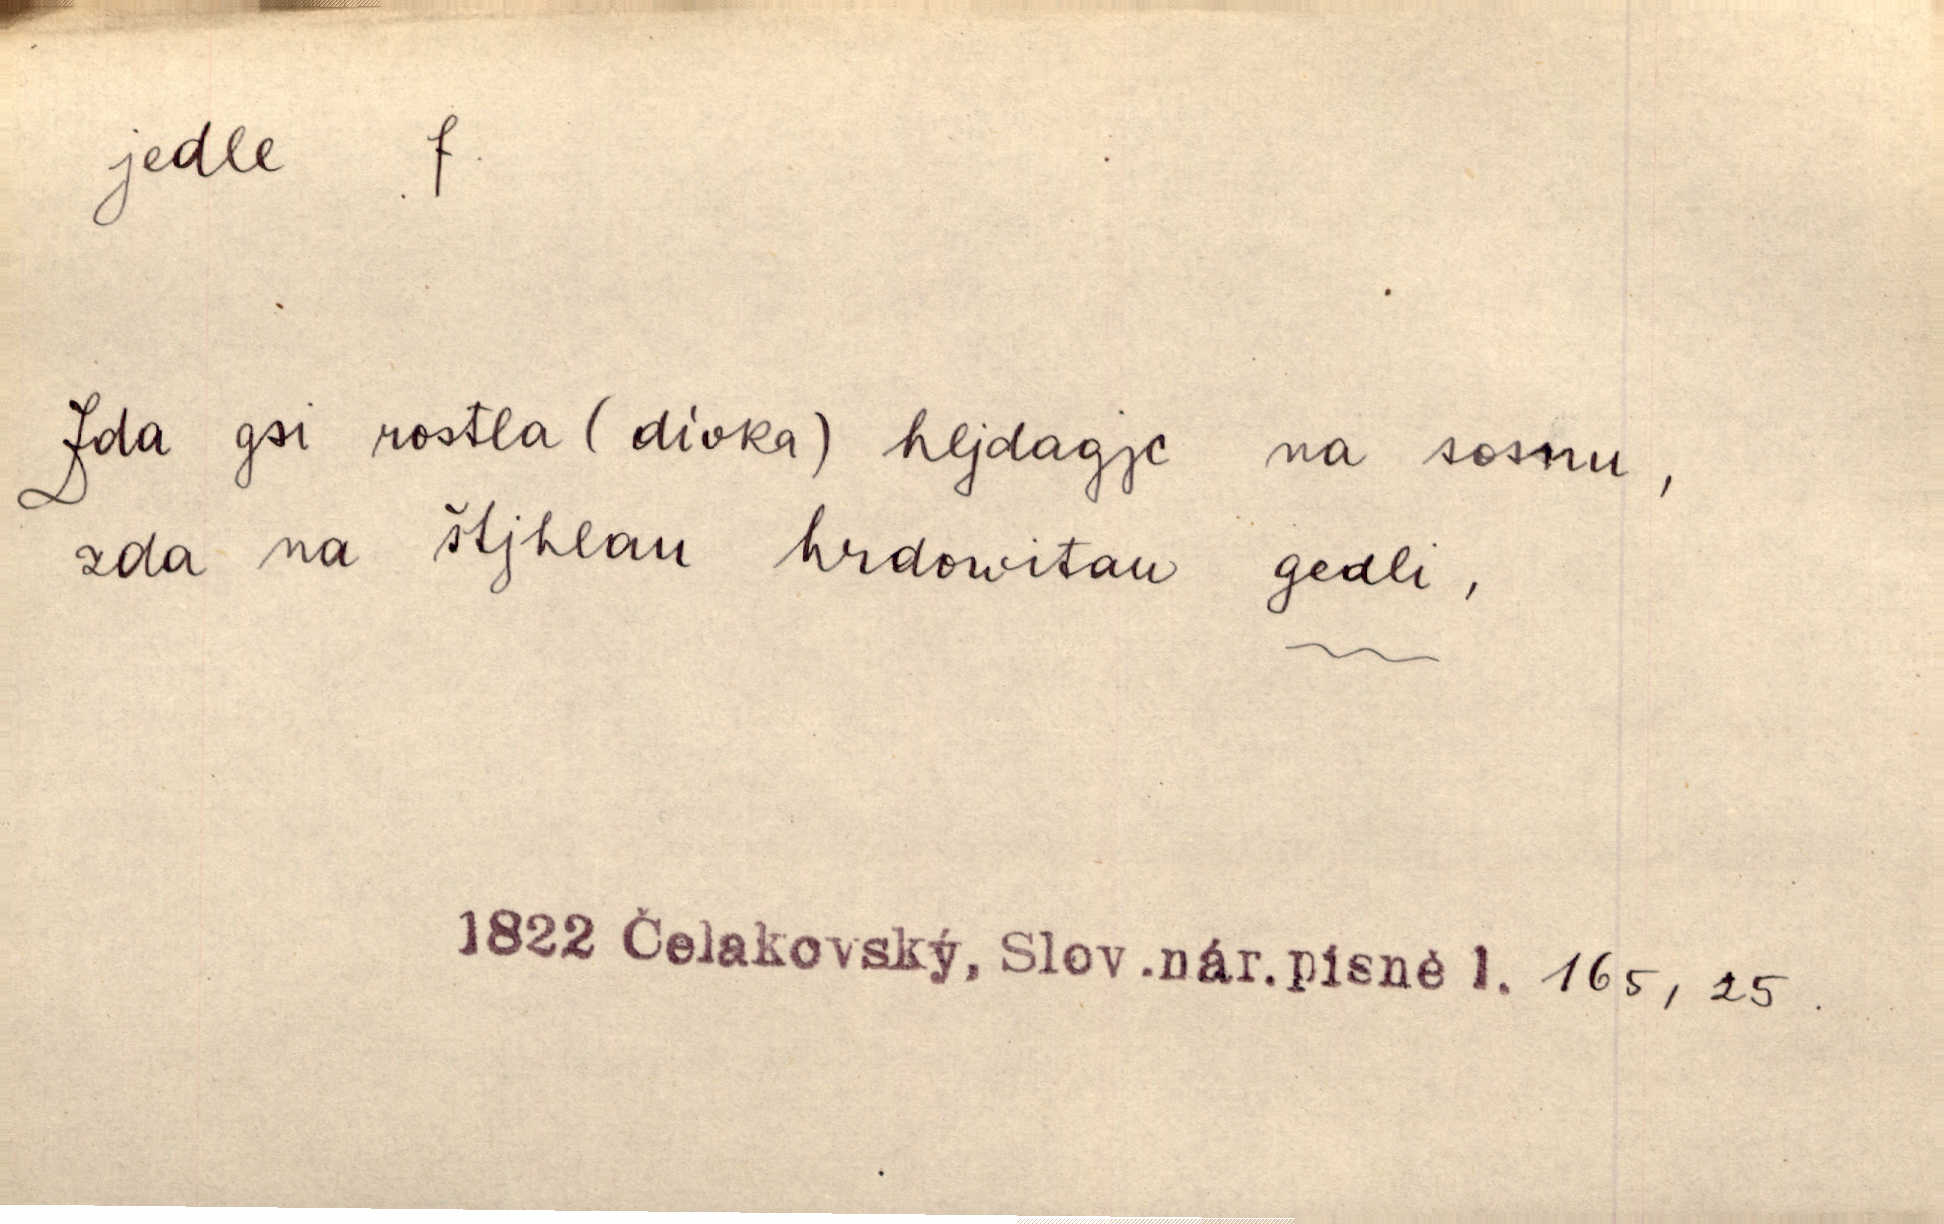 jedle f.
Zda gsi rostla (dívka) hljdagjc na sosnu,
zda na štjhlau hrdowitau gedli,
1822 Čelakovský, Slov.nár.písně 1. 165, 25.